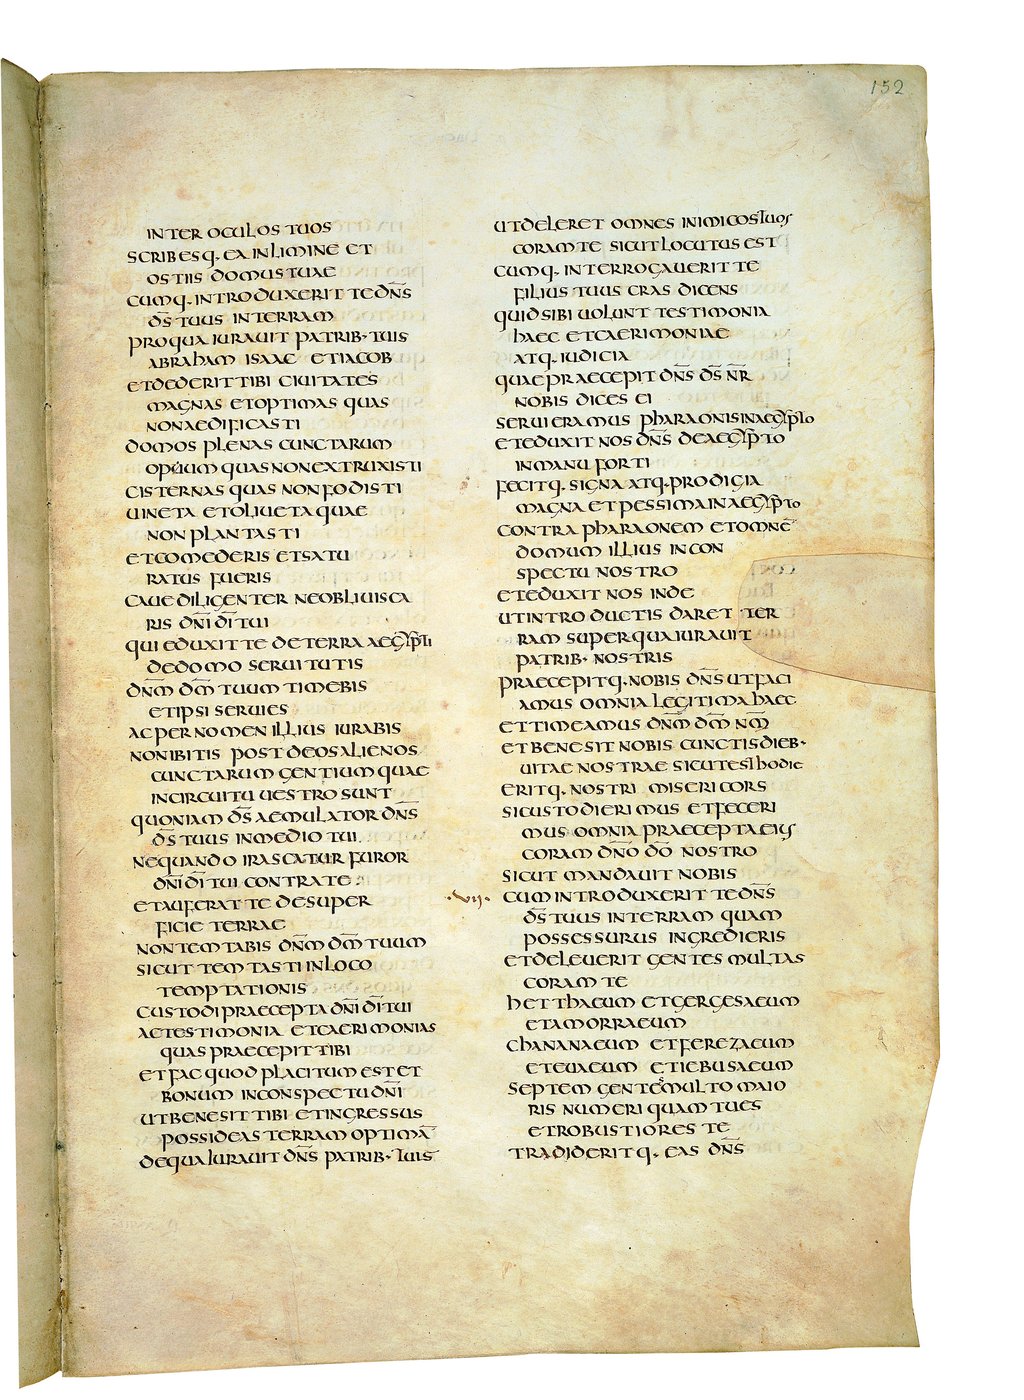 152
INTER OCULOS TUOS
SCRIBESQ· EA INLIMINE ET
OSTIIS DOMUS TUAE
CUMQ· INTRODUXERIT TE DN̅S
DS̅ TUUS INTERRAM
PRO QUA IURAUIT PATRIB· TUIS
ABRAHAM ISAAC ETIACOB
ETDEDERIT TIBI CIUITATES
MAGNAS ETOPTIMAS QUAS
NONAEDIFICASTI
DOMOS PLENAS CUNCTARUM
OPUUM QUAS NON EXTRUXISTI
CISTERNAS QUAS NON FODISTI
UINETA ETOLIUETA QUAE
NON PLANTASTI
ETCOMEDERIS ETSATU
RATUS FUERIS
CAUE DILIGENTER NEOBLIUISCA
RIS DN̅I DI̅ TUI
QUI EDUXIT TE DE TERRA AEGYPTI
DEDOMO SERUITUTIS
DN̅M DM̅ TUUM TIMEBIS
ETIPSI SERUIES
AC PER NOMEN ILLIUS IURABIS
NONIBITIS POST DEOS ALIENOS
CUNCTARUM GENTIUM QUAE
INCIRCUITU UESTRO SUNT
QUONIAM DS̅ AEMULATOR DN̅S
DS̅ TUUS INMEDIO TUI
NEQUANDO IRASCATUR FUROR
DN̅I DI̅ TUI CONTRA TE
ETAUFERAT TE DESUPER
FICIE TERRAE
NONTEMTABIS DN̅M DM̅ TUUM
SICUT TEMTASTI INLOCO
TEMPTATIONIS
CUSTODI PRAECEPTA DN̅I DI̅ TUI
AC TESTIMONIA ETCAERIMONIAS
QUAS PRAECEPIT TIBI
ETFAC QUOD PLACITUM EST ET
BONUM INCONSPECTU DN̅I
UTBENESIT TIBI ETINGRESSUS
POSSIDEAS TERRAM OPTIMA̅
DEQUA IURAUIT DN̅S PATRIB· TUIS
UTDELERET OMNES INIMICOS TUOS
CORAM TE SICUT LOCUTUS EST
CUMQ· INTERROGAUERIT TE
FILIUS TUUS CRAS DICENS
QUIDSIBI UOLUNT TESTIMONIA
HAEC ETCAERIMONIAE
ATQ· IUDICIA
QUAE PRAECEPIT DN̅S DS̅ NR̅
NOBIS DICES EI
SERUI ERAMUS PHARAONIS INAEGYPTO
ETEDUXIT NOS DN̅S DEAEGYPTO
INMANU FORTI
FECITQ· SIGNA ATQ· PRODIGIA
MAGNA ET PESSIMA INAEGYPTO
CONTRA PHARAONEM ETOMNE̅
DOMUM ILLIUS INCON
SPECTU NOSTRO
ETEDUXIT NOS INDE
UTINTRODUCTIS DARET TER
RAM SUPER QUA IURAUIT
PATRIB· NOSTRIS
PRAECEPITQ· NOBIS DN̅S UTFACI
AMUS OMNIA LEGITIMA HAEC
ETTIMEAMUS DN̅M DM̅ NM̅
ETBENESIT NOBIS CUNCTIS DIEB·
UITAE NOSTRAE SICUTEST HODIE
ERITQ· NOSTRI MISERICORS
SICUSTODIERIMUS ETFECERI
MUS OMNIA PRAECEPTA EIUS
CORAM DN̅O DO̅ NOSTRO
SICUT MANDAUIT NOBIS
·VII· CUM INTRODUXERIT TE DN̅S
DS̅ TUUS INTERRAM QUAM
POSSESSURUS INGREDIERIS
ETDELEUERIT GENTES MULTAS
CORAM TE
HETTHAEUM ETGERGESAEUM
ETAMORRAEUM
CHANANAEUM ETFEREZAEUM
ETEUAEUM ETIEBUSAEUM
SEPTEM GENTES MULTO MAIO
RIS NUMERI QUAM TU ES
ETROBUSTIORES TE
TRADIDERITQ· EAS DN̅S